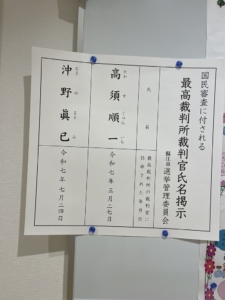 国民審査に付される
最高裁判所裁判官氏名掲示
選挙管理委員会
氏名
最高裁判所の裁判官に
任命された年月日
高須順一
令和七年三月二七日
沖野眞已
令和七年七月二四日